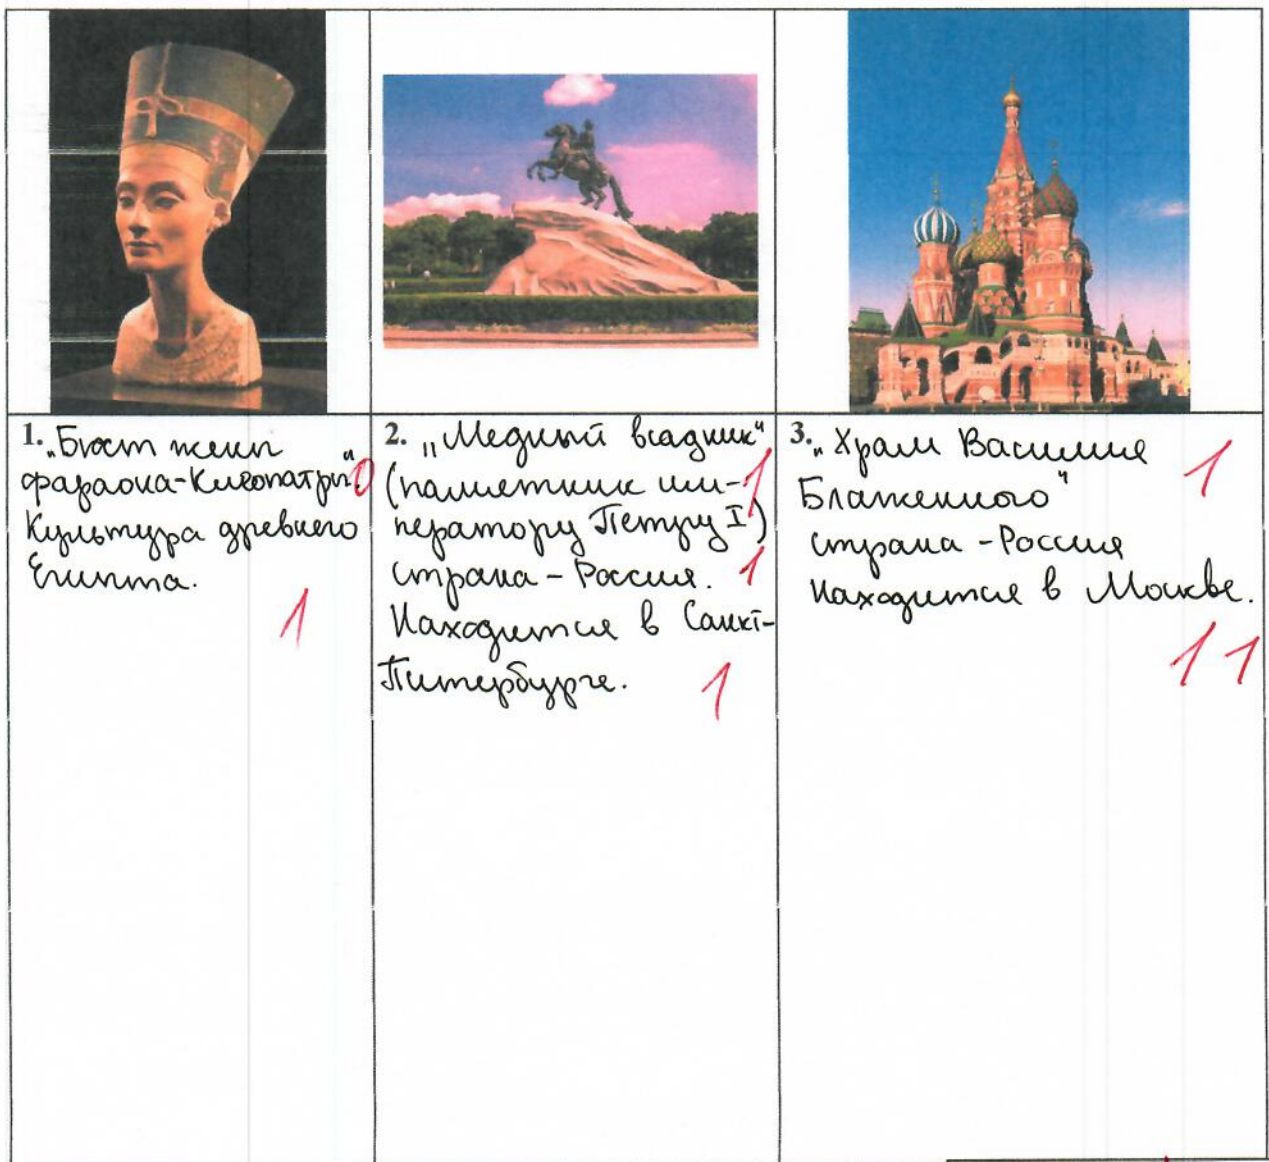 1. „Бюст жены
фараона-Клеопатры“. 0
Культура древнего
Египта.
1
2. „Медный всадник“
(памятник им- 1
ператору Петру I)
страна - Россия. 1
Находится в Санкт-
Питербурге. 1
3. „Храм Василия 1
Блаженного“
страна - Россия
находится в Москве.
1 1